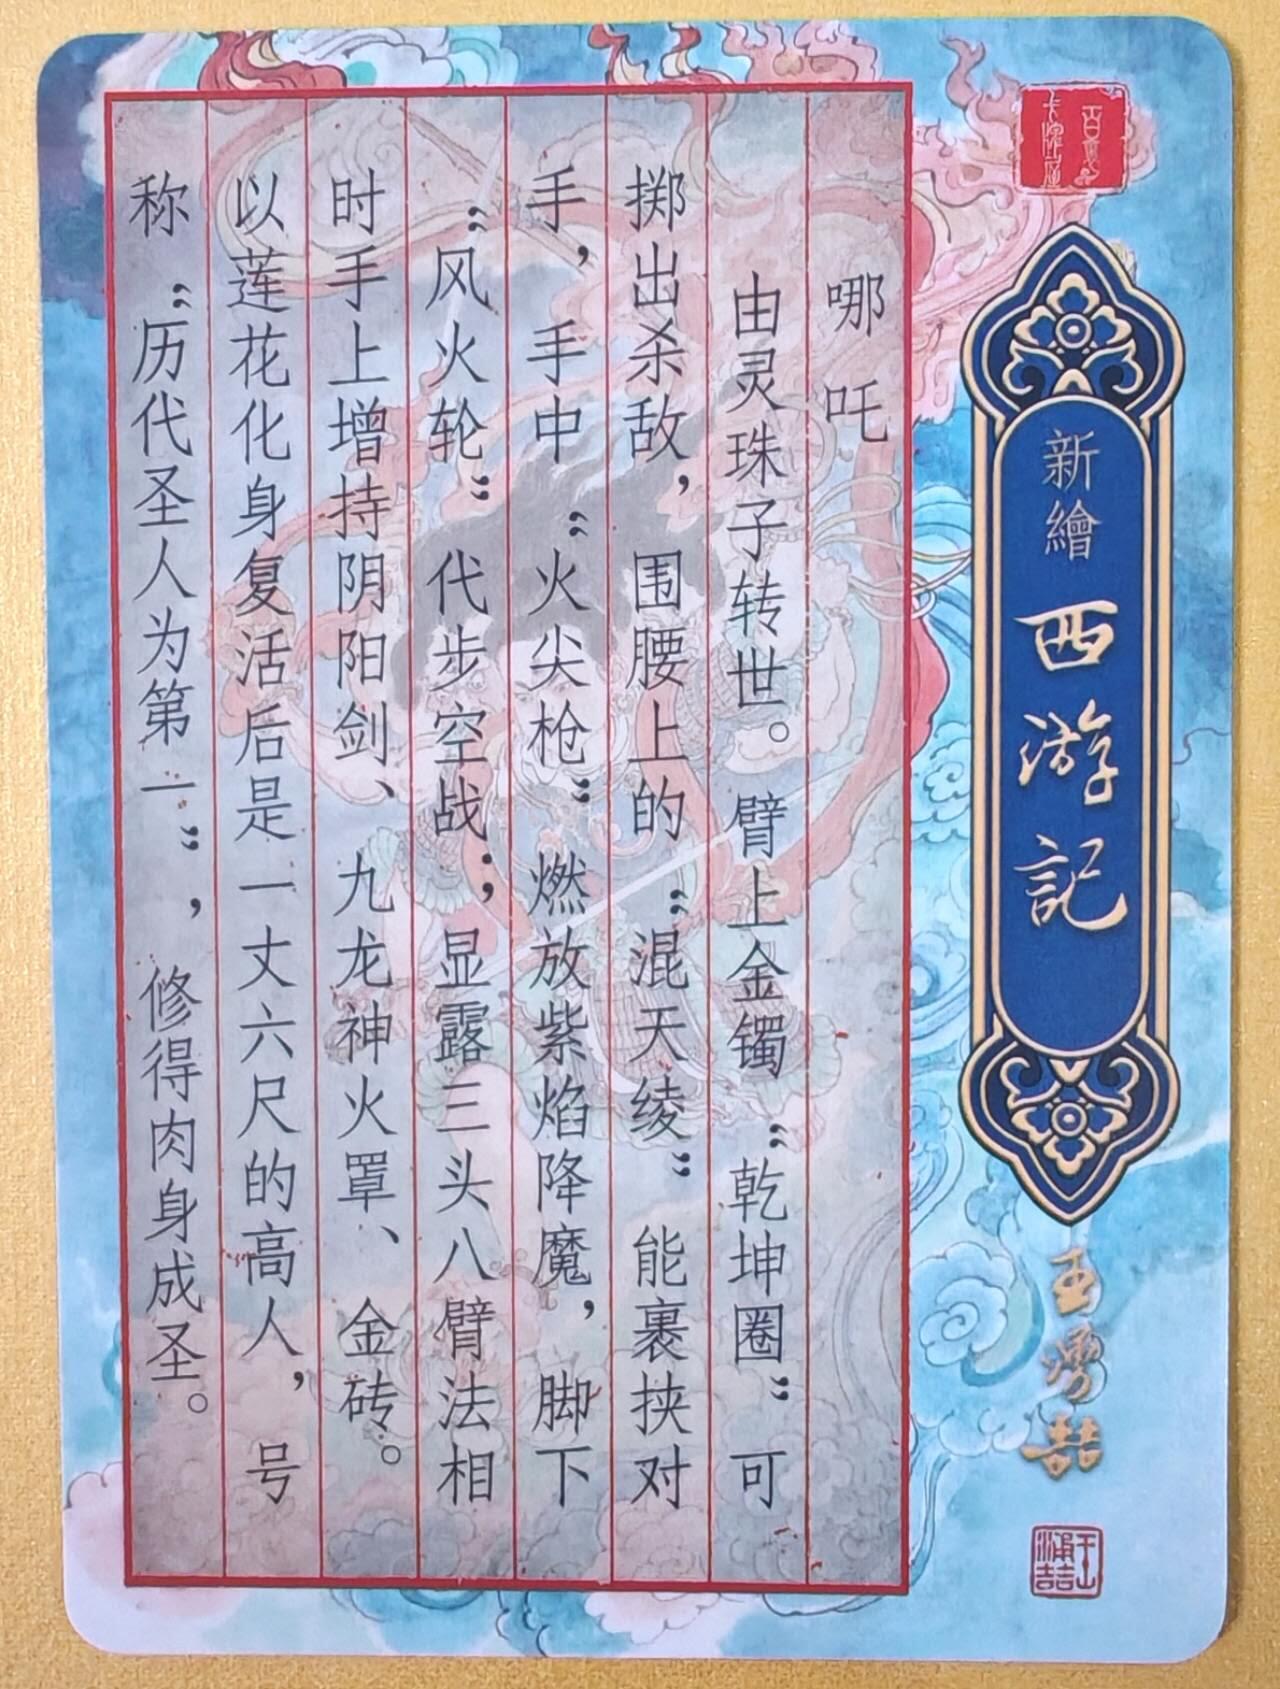 新繪 西游記
哪吒
由灵珠子转世。臂上金镯“乾坤圈”可
掷出杀敌，围腰上的“混天绫”能裹挟对
手，手中“火尖枪”燃放紫焰降魔，脚下
“风火轮”代步空战；显露三头八臂法相
时手上增持阴阳剑、九龙神火罩、金砖。
以莲花化身复活后是一丈六尺的高人，号
称“历代圣人为第一”，修得肉身成圣。